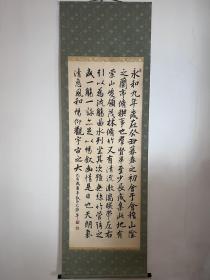 永和九年歲在癸丑暮春之初會于會稽山陰
之蘭亭脩稧事也羣賢畢至少長咸集此地有
崇山峻領茂林脩竹又有清流激湍暎帶左右
引以為流觴曲水列坐其次雖無絲竹管弦之
盛一觴一詠亦足以暢叙幽情是日也天朗氣
清惠風和暢仰觀宇宙之大